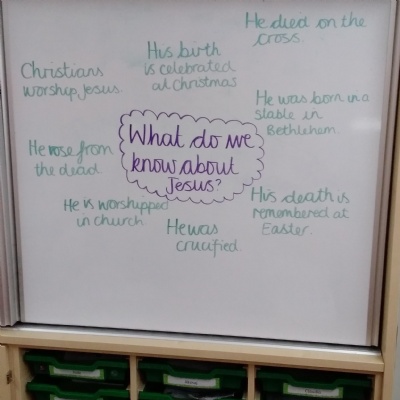 He died on the
cross.
His birth
is celebrated
at Christmas
Christians
worship Jesus.
He was born in a
stable in
Bethlehem.
What do we
know about
Jesus?
He rose from
the dead.
His death is
remembered at
Easter.
He is worshipped
in church
He was
crucified.